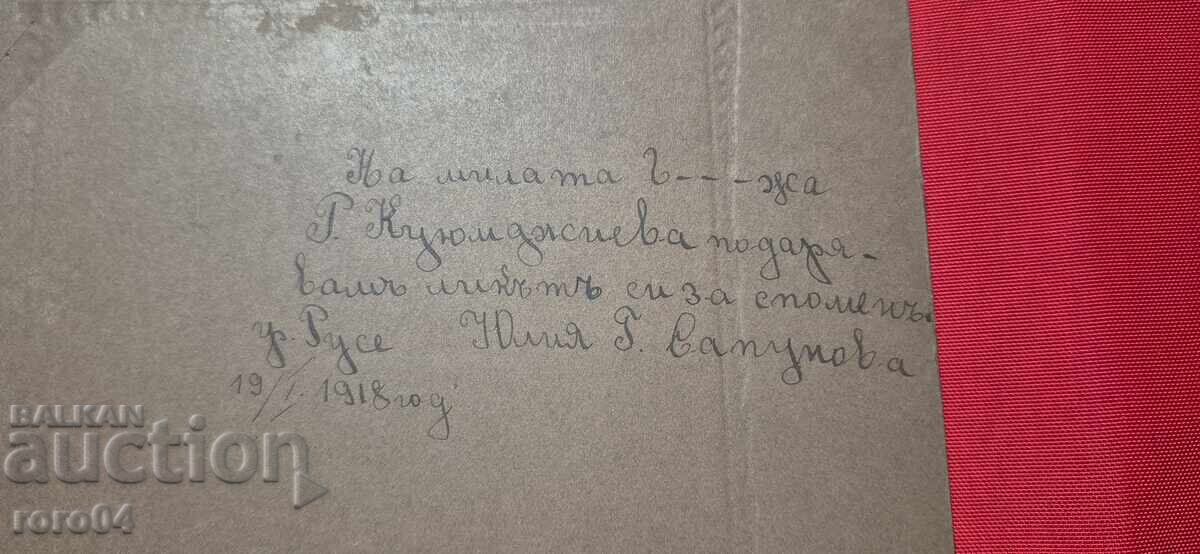 На милата Г----жа
Р. Куюмджиева подаря-
вамъ ликътъ си за споменъ.
гр. Русе Юлия Г. Сапунова
19/I. 1918 год
BALKAN
auction
roro04